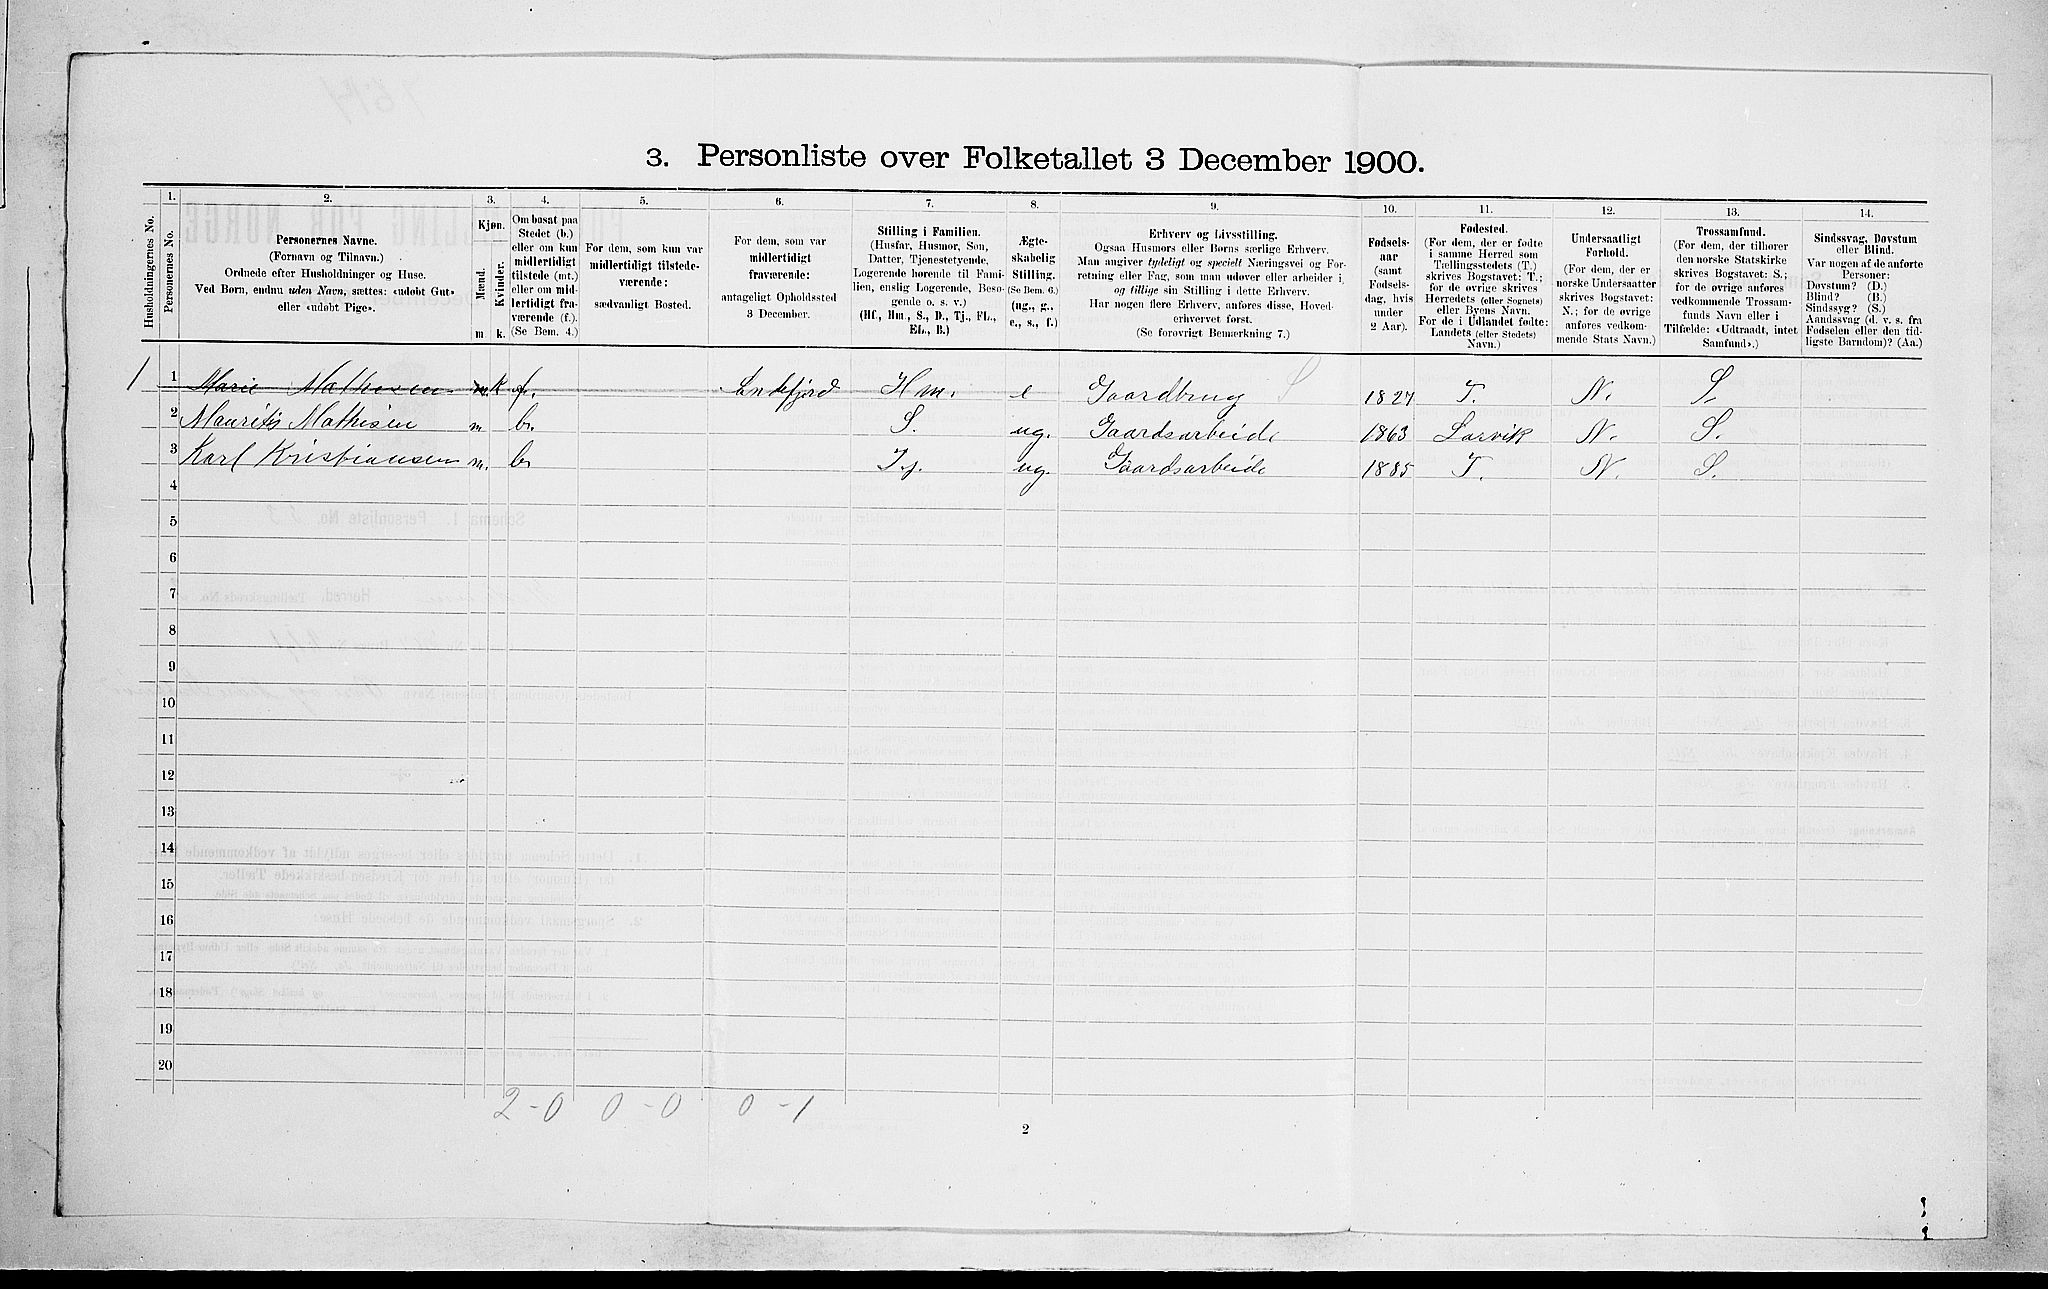 3. Personliste over Folketallet 3 December 1900.
Husholdningernes No.
1.
Personernes No.
2.
Personernes Navne.
(Fornavn og Tilnavn.)
Ordnede efter Husholdninger og Huse.
Ved Børn, endnu uden Navn, sættes: «udøbt Gut»
eller «udøbt Pige».
3.
Kjøn.
Mænd.
Kvinder.
m k.
4.
Om bosat paa
Stedet (b.)
eller om kun
midlertidigt
tilstede (mt.)
eller om mid-
lertidigt fra-
værende (f.).
(Se Bem. 4.)
5.
For dem, som kun var
midlertidigt tilstede-
værende:
sædvanligt Bosted.
6.
For dem, som var
midlertidigt
fraværende:
antageligt Opholdssted
3 December.
7.
Stilling i Familien.
(Husfar, Husmor, Søn,
Datter, Tjenestetyende,
Logerende hørende til Fami-
lien, enslig Logerende, Besø-
gende o. s. v.)
(Hf., Hm., S., D., Tj., FL.,
EL., B.)
8.
Ægte-
skabelig
Stilling.
(Se Bem. 6.)
(ug., g.,
e., s., f.)
9.
Erhverv og Livsstilling.
Ogsaa Husmors eller Børns særlige Erhverv.
Man angiver tydeligt og specielt Næringsvei og For-
retning eller Fag, som man udøver eller arbeider i,
og tillige sin Stilling i dette Erhverv.
Har nogen flere Erhverv, anføres disse, Hoved-
erhvervet først.
(Se forøvrigt Bemærkning 7.)
10.
Fødsels-
aar
(samt
Fødsels-
dag, hvis
under
2 Aar).
11.
Fødested.
(For dem, der er fødte
i samme Herred som
Tællingsstedets (T.)
skrives Bogstavet: T.;
for de øvrige skrives
Herredets (eller Sognets)
eller Byens Navn.
For de i Udlandet fødte:
Landets (eller Stedets)
Navn.)
12.
Undersaatligt
Forhold.
(For dem, der er
norske Undersaatter
skrives Bogstavet:
N.; for de øvrige
anføres vedkom-
mende Stats Navn.)
13.
Trossamfund.
(For dem, der tilhører
den norske Statskirke
skrives Bogstavet: S.;
for de øvrige anføres
vedkommende Trossam-
funds Navn eller i
Tilfælde: «Udtraadt, intet
Samfund».)
14.
Sindssvag, Døvstum
eller Blind.
Var nogen af de anførte
Personer:
Døvstum? (D.)
Blind? (B.)
Sindssyg? (S.)
Aandssvag (d. v. s. fra
Fødselen eller den tid-
ligste Barndom)? (Aa.)
1 1 Marie Mathisen k f. Sandefjord Hm. e Gaardbrug 1827 T. N. S.
2 Maurits Mathisen m b. S. ug. Gaardsarbeide 1863 Larvik N. S.
3 Karl Kristiansen m. b Tj. ug. Gaardsarbeide 1885 T. N. S.
4
5
6
7
8
9
10
11
12
13
14
15
16
17
18
19
20
2-0 0-0 0-1
2